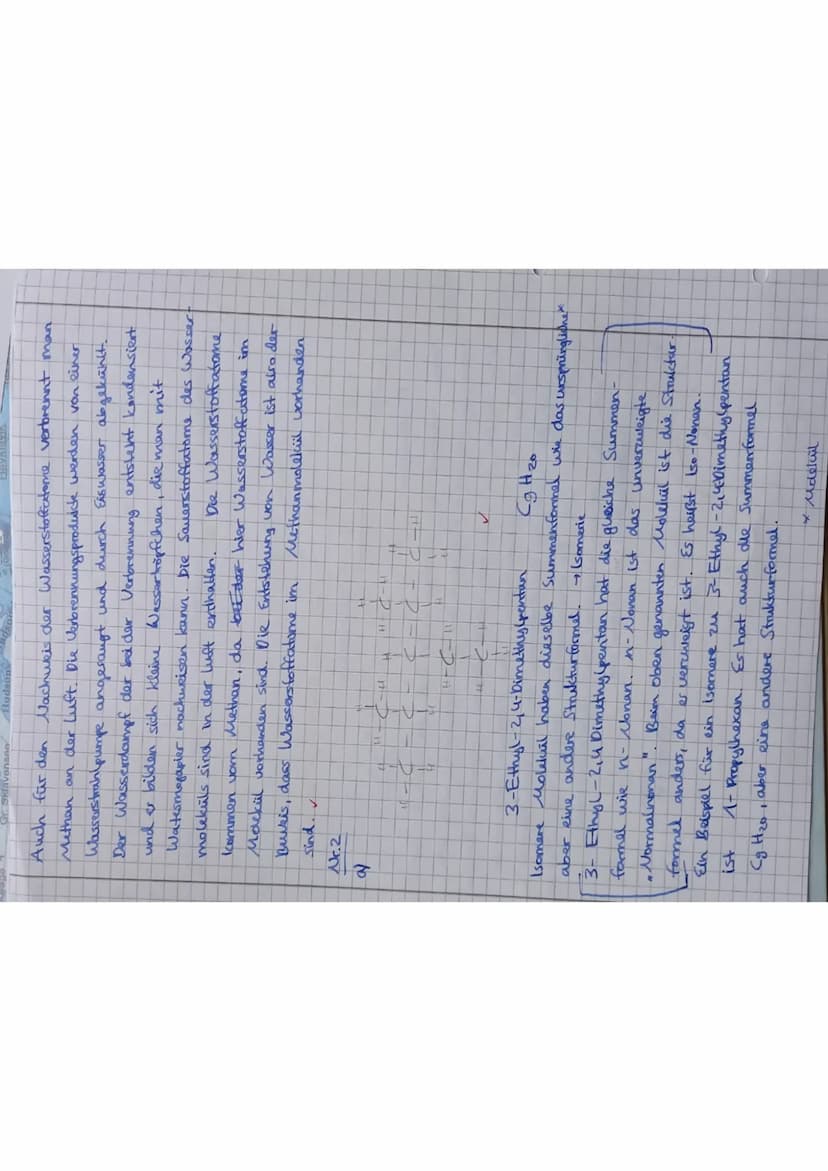 Auch für den Nachweis der Wasserstoffatome verbrennt man
Methan an der Luft. Die Verbrennungsprodukte werden von einer
Wasserstrahlpumpe angesaugt und durch Eiswasser abgekühlt.
Der Wasserdampf der bei der Verbrennung entsteht kondensiert
und er bilden sich kleine Wassertröpfchen, die man mit
Watesmopapier nachweisen kann. Die Sauerstoffatome des Wasser-
moleküls sind in der Luft enthalten. Die Wasserstoffatome
kommen vom Methan, da hier Wasserstoffatome im
Molekül vorhanden sind. Die Entstehung von Wasser ist also der
Beweis, dass Wasserstoffatome im Methanmolekül vorhanden
sind. ✓
Nr.2
a)
3-Ethyl-2,4-Dimethylpentan C9H20 ✓
Isomere Moleküle haben dieselbe Summenformel wie das ursprüngliche*
aber eine andere Strukturformel. → Isomerie
3-Ethyl-2,4Dimethylpentan hat die gleiche Summen-
formel wie n-Nonan. n-Nonan ist das unverzweigte
„Normalnonan". Beim oben genannten Molekül ist die Struktur-
formel anders, da er verzweigt ist. Es heißt Iso-Nonan.
Ein Beispiel für ein Isomere zu 3-Ethyl-2,4Dimethylpentan
ist 1-Propylhexan. Es hat auch die Summenformel
C9H20, aber eine andere Strukturformel.
* Molekül